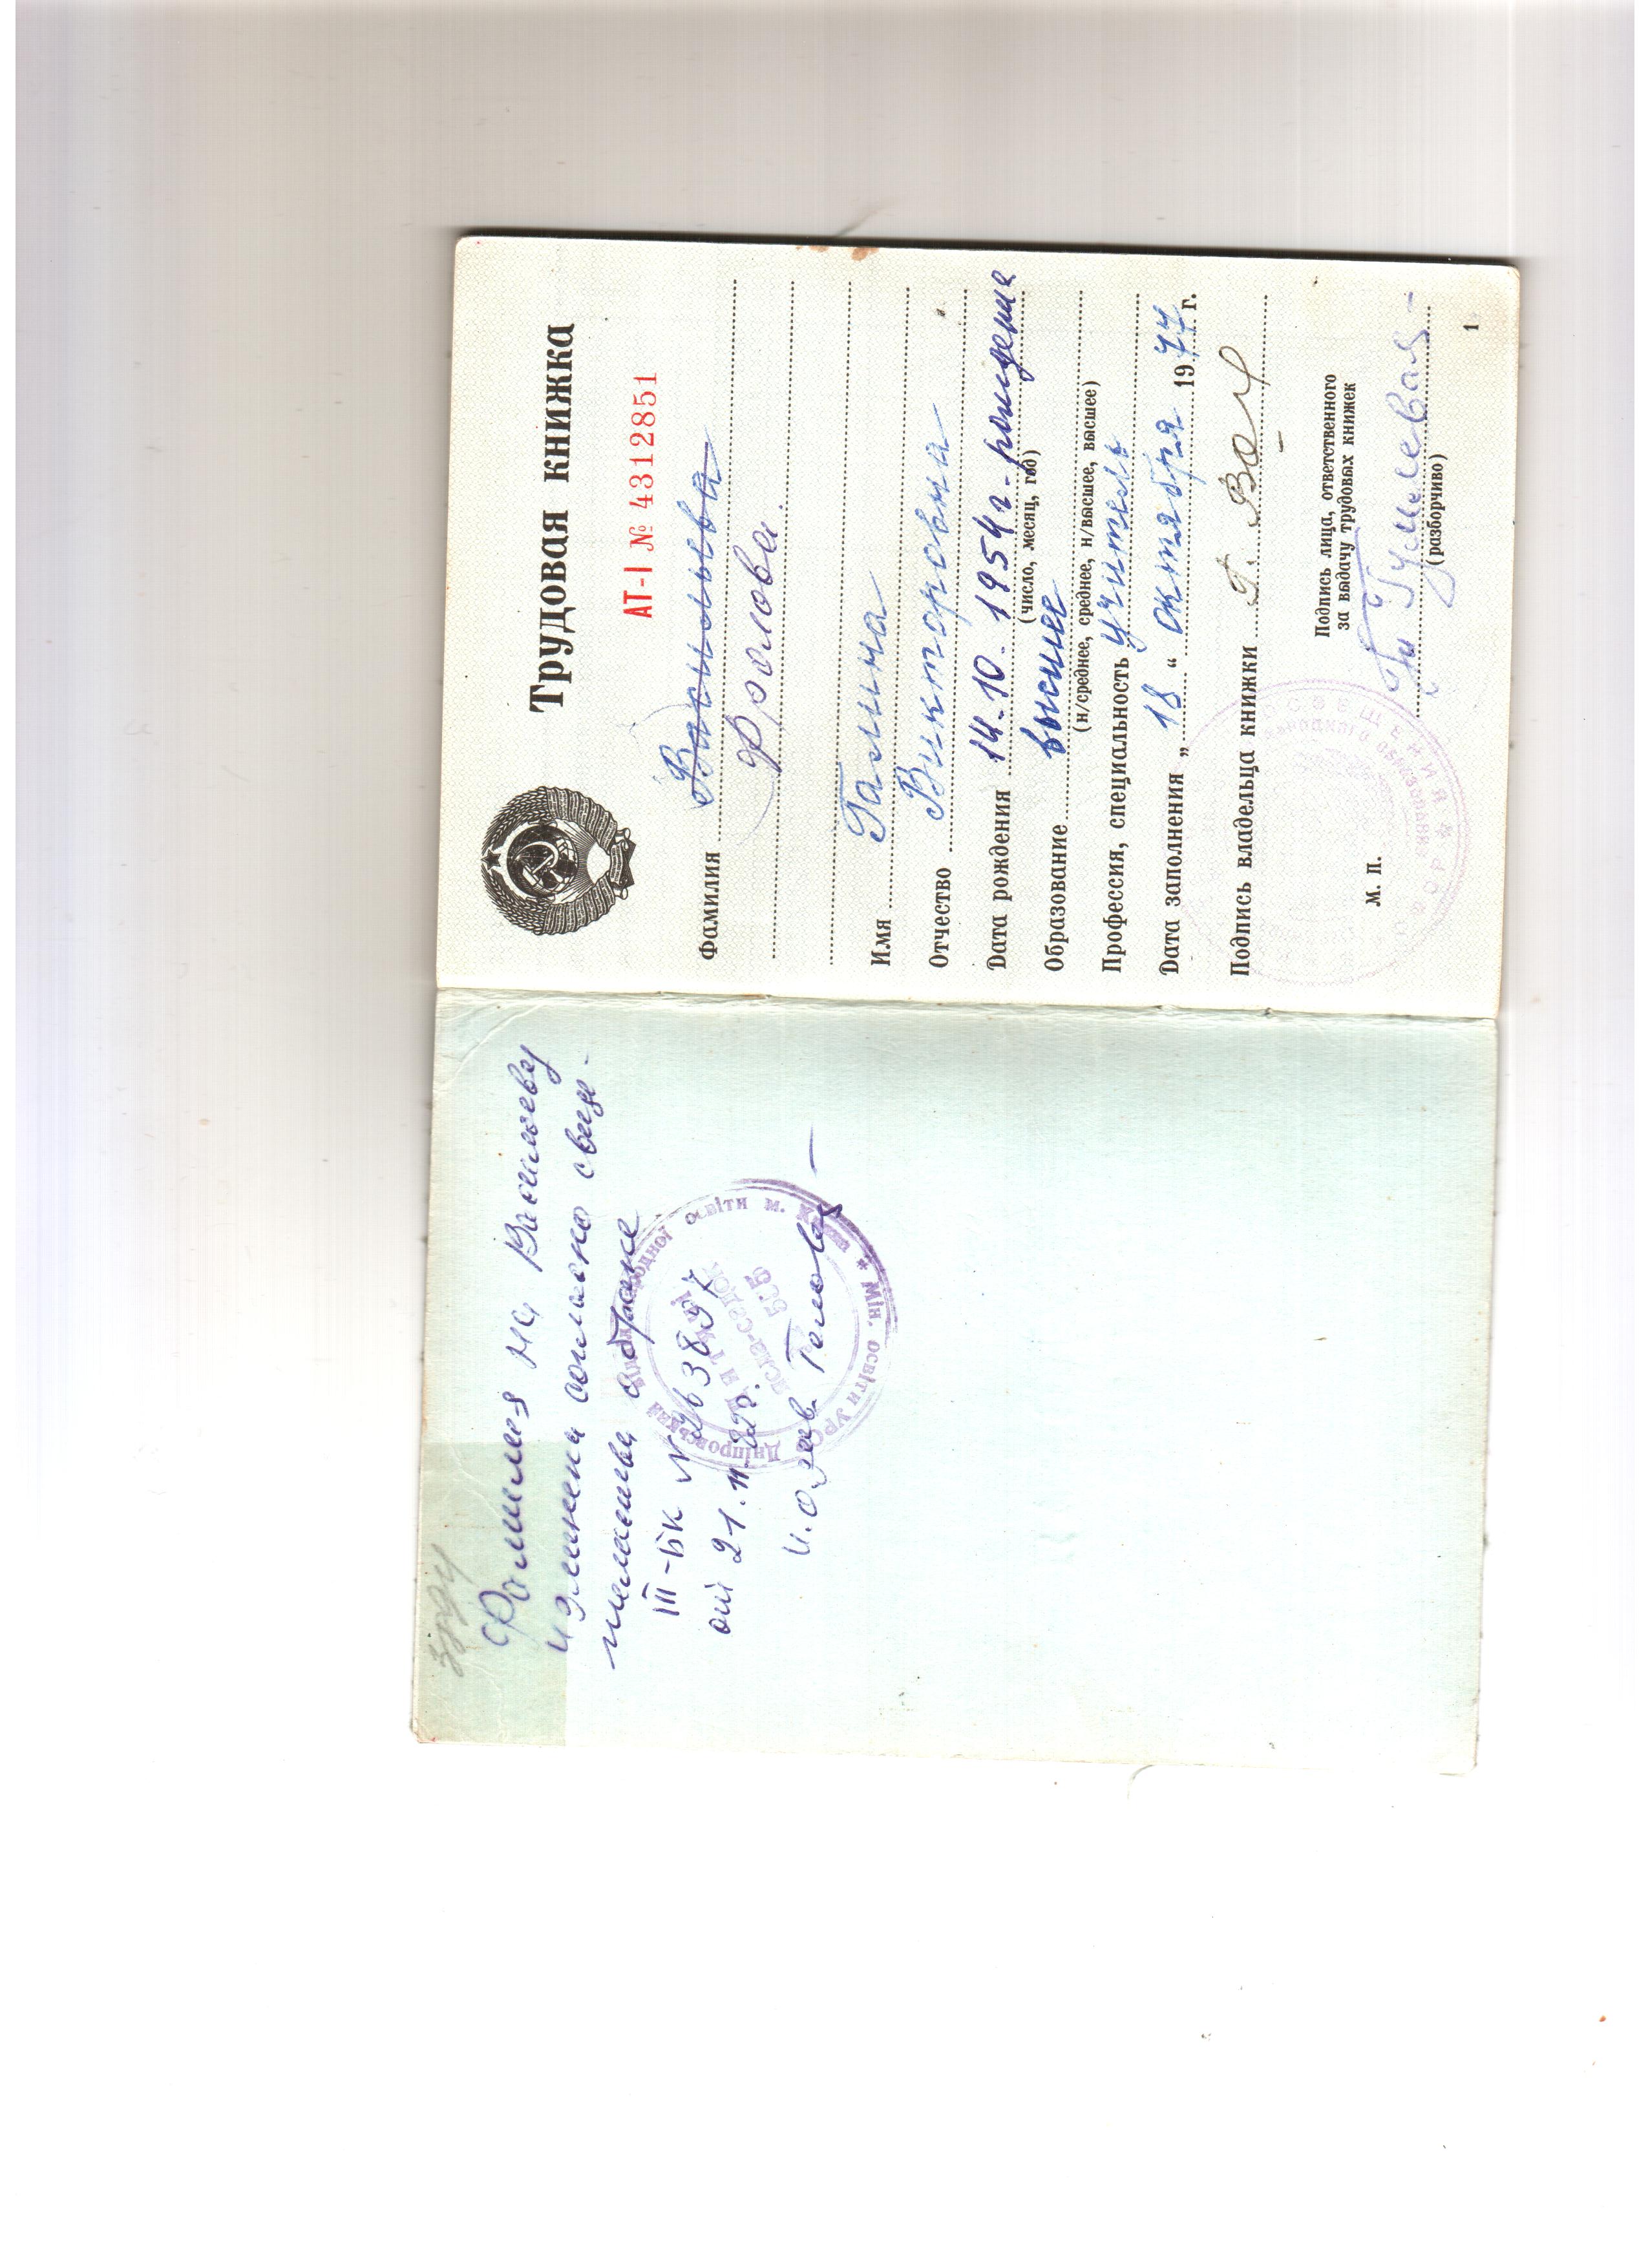 Фамилия на Васильеву
изменена согласно свиде-
тельства о браке
III-БК № 263897
от 21.11.
и.о. зав.
Дніпровський народної освіти м. Києва * Мін. освіти УРСР
ясла-садок
505
Трудовая книжка
АТ-I № 4312851
Фамилия Васильева
Фролова
Имя Галина
Отчество Викторовна
Дата рождения 14.10.1954 г. рождения
(число, месяц, год)
Образование высшее
(н/среднее, среднее, н/высшее, высшее)
Профессия, специальность учитель
Дата заполнения „18“ октября 1977 г.
Подпись владельца книжки Г. Вас
Подпись лица, ответственного
за выдачу трудовых книжек
М. П.
(разборчиво)
1